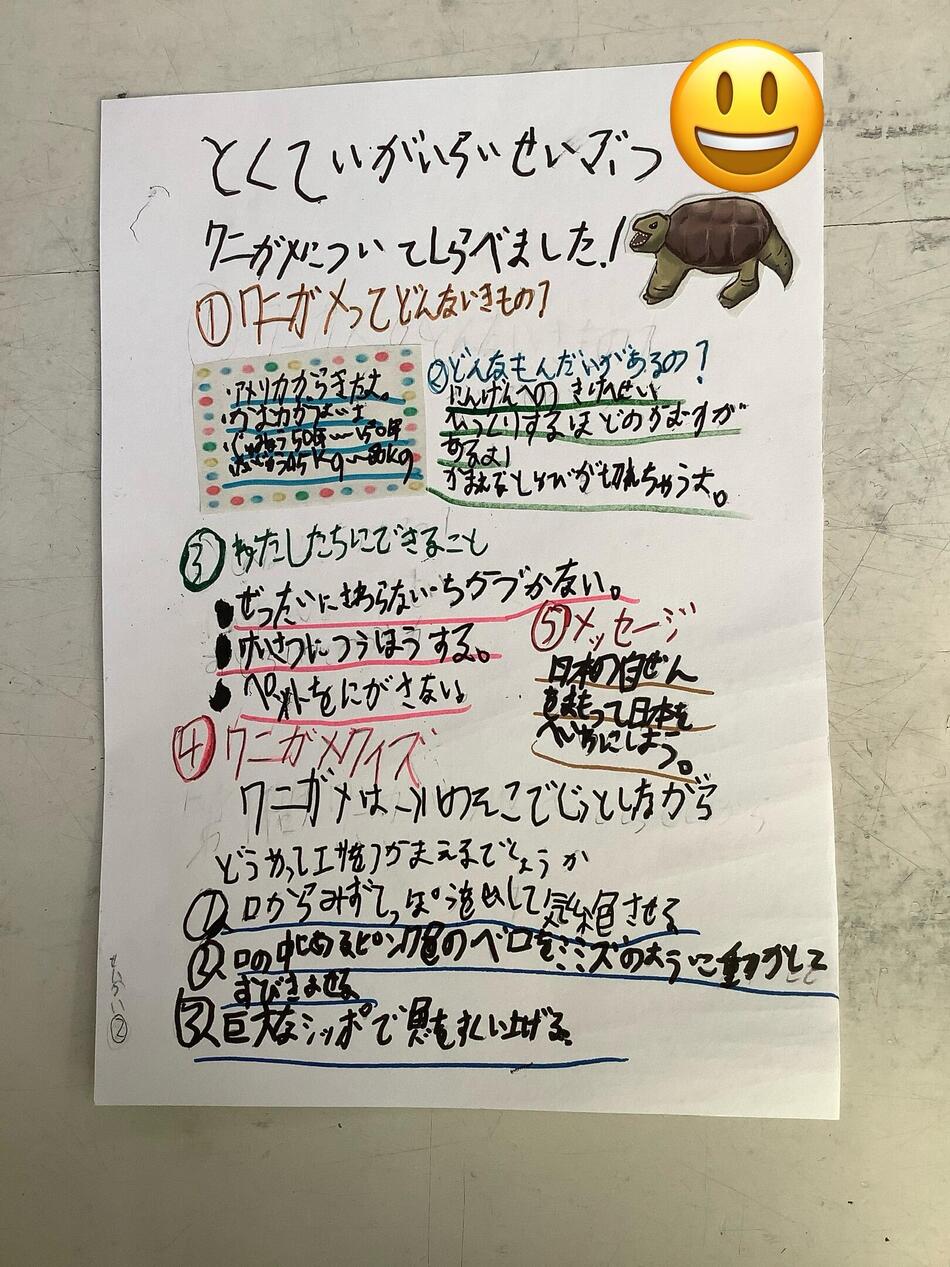 とくていがいらいせいぶつ
ワニガメについてしらべました!
①ワニガメってどんないきもの?
アメリカからきたよ。
かむ力がつよいよ
じゅみょう50年〜150年
②どんなもんだいがあるの?
にんげんへの きけんせい
びっくりするほどのかむ力が
あるよ!
かまれるとゆびが切れちゃうよ。
③わたしたちにできること
●ぜったいにさわらない・ちかづかない。
●けいさつにつうほうする。
●ペットをにがさない
⑤メッセージ
日本の自ぜん
をまもって日本を
へいわにしよう。
④ワニガメクイズ
ワニガメは水のそこでじっとしながら
どうやってエサをつかまえるでしょうか
①口からみずでっぽうをだして気絶させる
②口の中にあるピンク色のベロをミミズのように動かして
すびきよせる
③巨大なシッポで魚をすくい上げる。
せんらい②